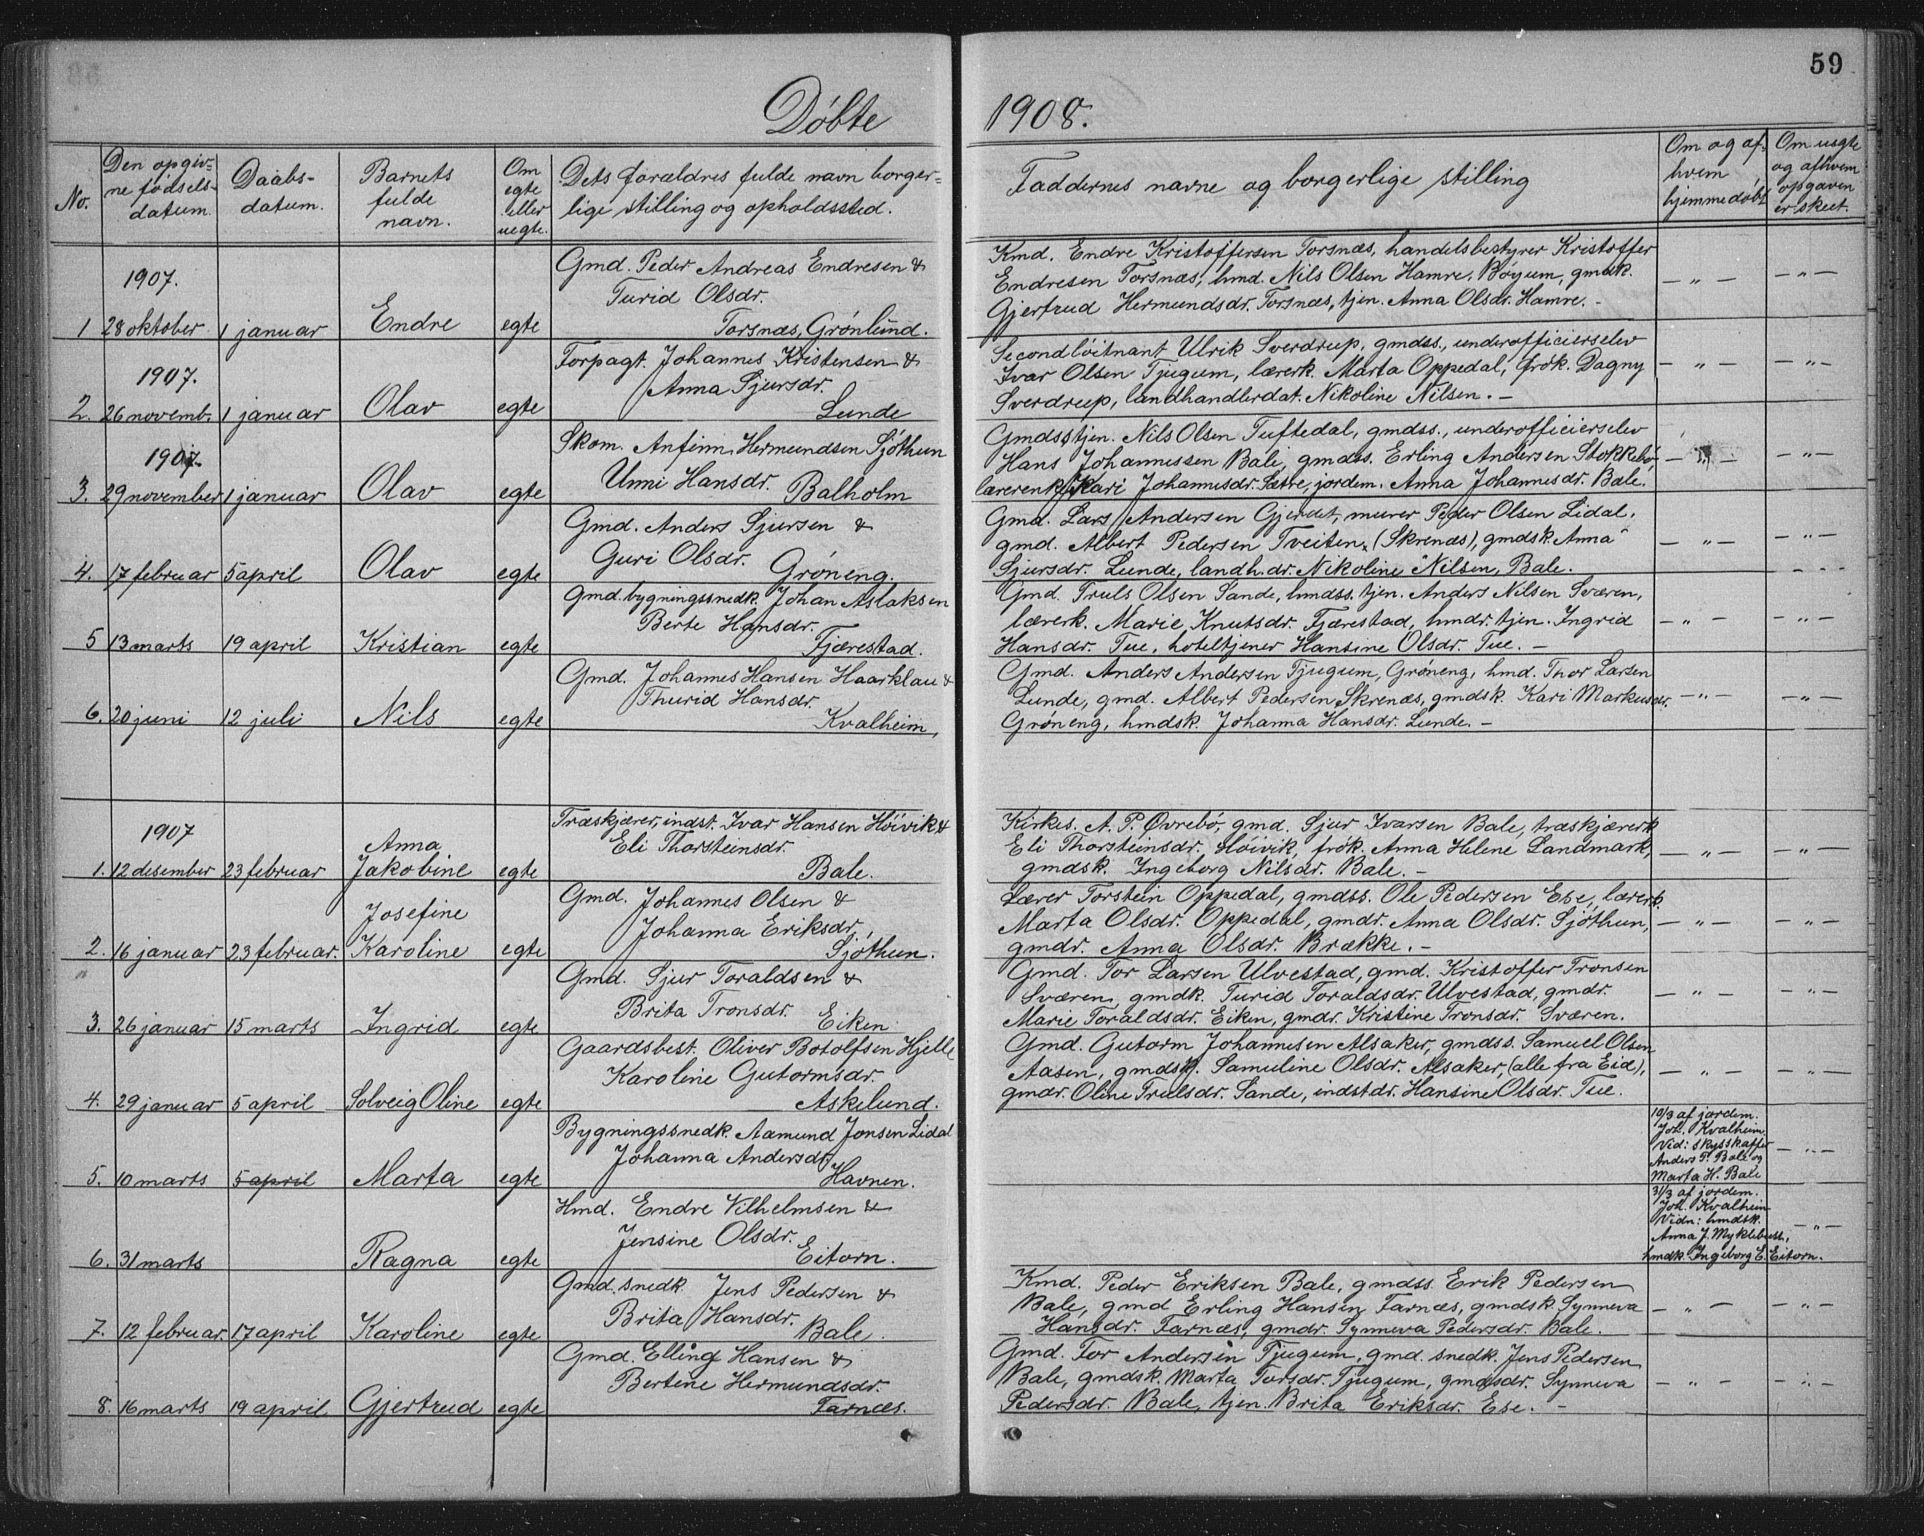 59
Døbte 1908.
No.
Den opgiv=
ne fødsels-
datum.
Daabs-
datum.
Barnets
fulde
navn.
Om
egte
eller
uegte.
Dets forældres fulde navn borger=
lige stilling og opholdssted.
Faddernes navne og borgerlige stilling
Om og af
hvem
hjemmedøbt
Om uegte
og af hvem
opgaven
er skeet.
1907.
1 28 oktober 1 januar Endre egte
Gmd. Peder Andreas Endresen &
Turid Olsdr.
Torsnæs, Grønlund.
Kmd. Endre Kristoffersen Torsnæs, handelsbestyrer Kristoffer
Endresen Torsnæs, hmd. Nils Olsen Hamre, Boyum, gmdk.
Gjertrud Hermundsdr. Torsnæs, tjen. Anna Olsdr. Hamre. -
— " — — " —
1907.
2. 26 novemb. 1 januar Olav egte
Forpagt. Johannes Kristensen &
Anna Sjursdr.
Lunde
Secondløitnant Ulrik Sverdrup, gmdss., underofficierselev
Ivar Olsen Tjugum, lærerk. Marta Oppedal, frøk. Dagny
Sverdrup, landhandlerdat. Nikoline Nilsen. -
— " — — " —
1907.
3. 29 november 1 januar Olav egte
Skom. Anfinn Hermundsen Sjøthun
Unni Hansdr. Balholm
Gmdsstjen. Nils Olsen Tuftedal, gmdss., underofficierselev
Hans Johannessen Bale, gmdss. Erling Andersen Stokkebø,
lærerenke Kari Johannesdr. Sætre, jordem. Anna Johannesdr. Bale.
— " — — " —
4. 17 februar 5 april Olav egte
Gmd. Anders Sjursen &
Guri Olsdr. Grøneng.
Gmd. Lars Andersen Gjerdet, murer Peder Olsen Lidal,
gmd. Albert Pedersen Tveiten (Skrenæs), gmdsk. Anna
Sjursdr. Lunde, landh.dr. Nikoline Nilsen, Bale.
— " — — " —
5 13 marts 19 april Kristian egte
Gmd. bygningssnedk. Johan Aslaksen
Berte Hansdr.
Fjærestad.
Gmd. Truls Olsen Sande, hmdss. tjen. Anders Nilsen Sværen,
lærerk. Marie Knutsdr. Fjærestad, hmdr. tjen. Ingrid
Hansdr. Tue, hoteltjener Hansine Olsdr. Tue. -
— " — — " —
6. 20 juni 12 juli Nils egte
Gmd. Johannes Hansen Haarklau &
Thurid Hansdr.
Kvalheim,
Gmd. Anders Andersen Tjugum, Grøneng, hmd. Thor Larsen
Lunde, gmd. Albert Pedersen Skrenæs, gmdsk. Kari Markusdr.
Grøneng, hmdsk. Johanna Hansdr. Lunde. -
— " — — " —
1907
1. 12 desember 23 februar Anna
Jakobine egte
Træskjærer, indst. Ivar Hansen Høivik &
Eli Thorsteinsdr.
Bale.
Kirkes. A. P. Øvrebø, gmd. Sjur Ivarsen Bale, træskjærerk
Eli Thorsteinsdr. Høivik, frøk. Anna Helene Landmark,
gmdsk. Ingeborg Nilsdr. Bale. -
— " — — " —
2. 16 januar 23 februar. Josefine
Karoline egte
Gmd. Johannes Olsen &
Johanna Eriksdr.
Sjøthun.
Lærer Torstein Oppedal, gmdss. Ole Pedersen Ese, lærerk.
Marta Olsdr. Oppedal, gmdr. Anna Olsdr. Sjøthun,
gmdr. Anna Olsdr. Brække. -
— " — — " —
3. 26 januar 15 marts Ingrid egte
Gmd. Sjur Toraldsen &
Brita Tronsdr. Eiken
Gmd. Tor Larsen Ulvestad, gmd. Kristoffer Tronsen
Sværen, gmdk. Turid Toraldsdr. Ulvestad, gmdr.
Marie Toraldsdr. Eiken, gmdr. Kristine Tronsdr. Sværen.
— " — — " —
4. 29 januar 5 april Solveig Oline egte
Gaardsbest. Oliver Botolfsen Hjelle
Karoline Gutormsdr.
Askelund.
Gmd. Gutorm Johannesen Alsaker, gmdss. Samuel Olsen
Aasen, gmdsk. Samuline Olsdr. Alsaker, (alle fra Eid),
gmdr. Oline Trulsdr. Sande, indstdr. Hansine Olsdr. Tue.
— " — — " —
5. 10 marts 5 april Marta egte
Bygningssnedk. Aamund Jonsen Lidal
Johanna Andersdr.
Havnen.
10/3 af jordem.
Joh. Kvalheim
Vid: skysskaffer
Anders P. Bale og
Marta H. Bale
— " —
6. 31 marts Ragna egte
Hmd. Endre Vilhelmsen &
Jensine Olsdr.
Eitorn.
31/3 af jordem.
Joh. Kvalheim
Vidn: hmdsk.
Anna J. Myklebust,
hmdk. Ingeborg E. Eitorn.
— " —
7. 12 februar. 17 april Karoline egte
Gmd. snedk. Jens Pedersen &
Brita Hansdr.
Bale.
Kmd. Peder Eriksen Bale, gmdss. Erik Pedersen
Bale, gmd Erling Hansen Farnæs, gmdsk. Synneva
Hansdr. Farnæs, gmdr. Synneva Pedersdr. Bale.
— " — — " —
8. 16 marts 19 april Gjertrud egte
Gmd. Elling Hansen &
Bertine Hermundsdr.
Farnæs.
Gmd. Tor Andersen Tjugum, gmd. snedk. Jens Pedersen
Bale, gmdsk. Marta Torsdr. Tjugum, gmdsdr. Synneva
Pedersdr. Bale, tjen. Brita Eriksdr. Ese. -
— " — — " —